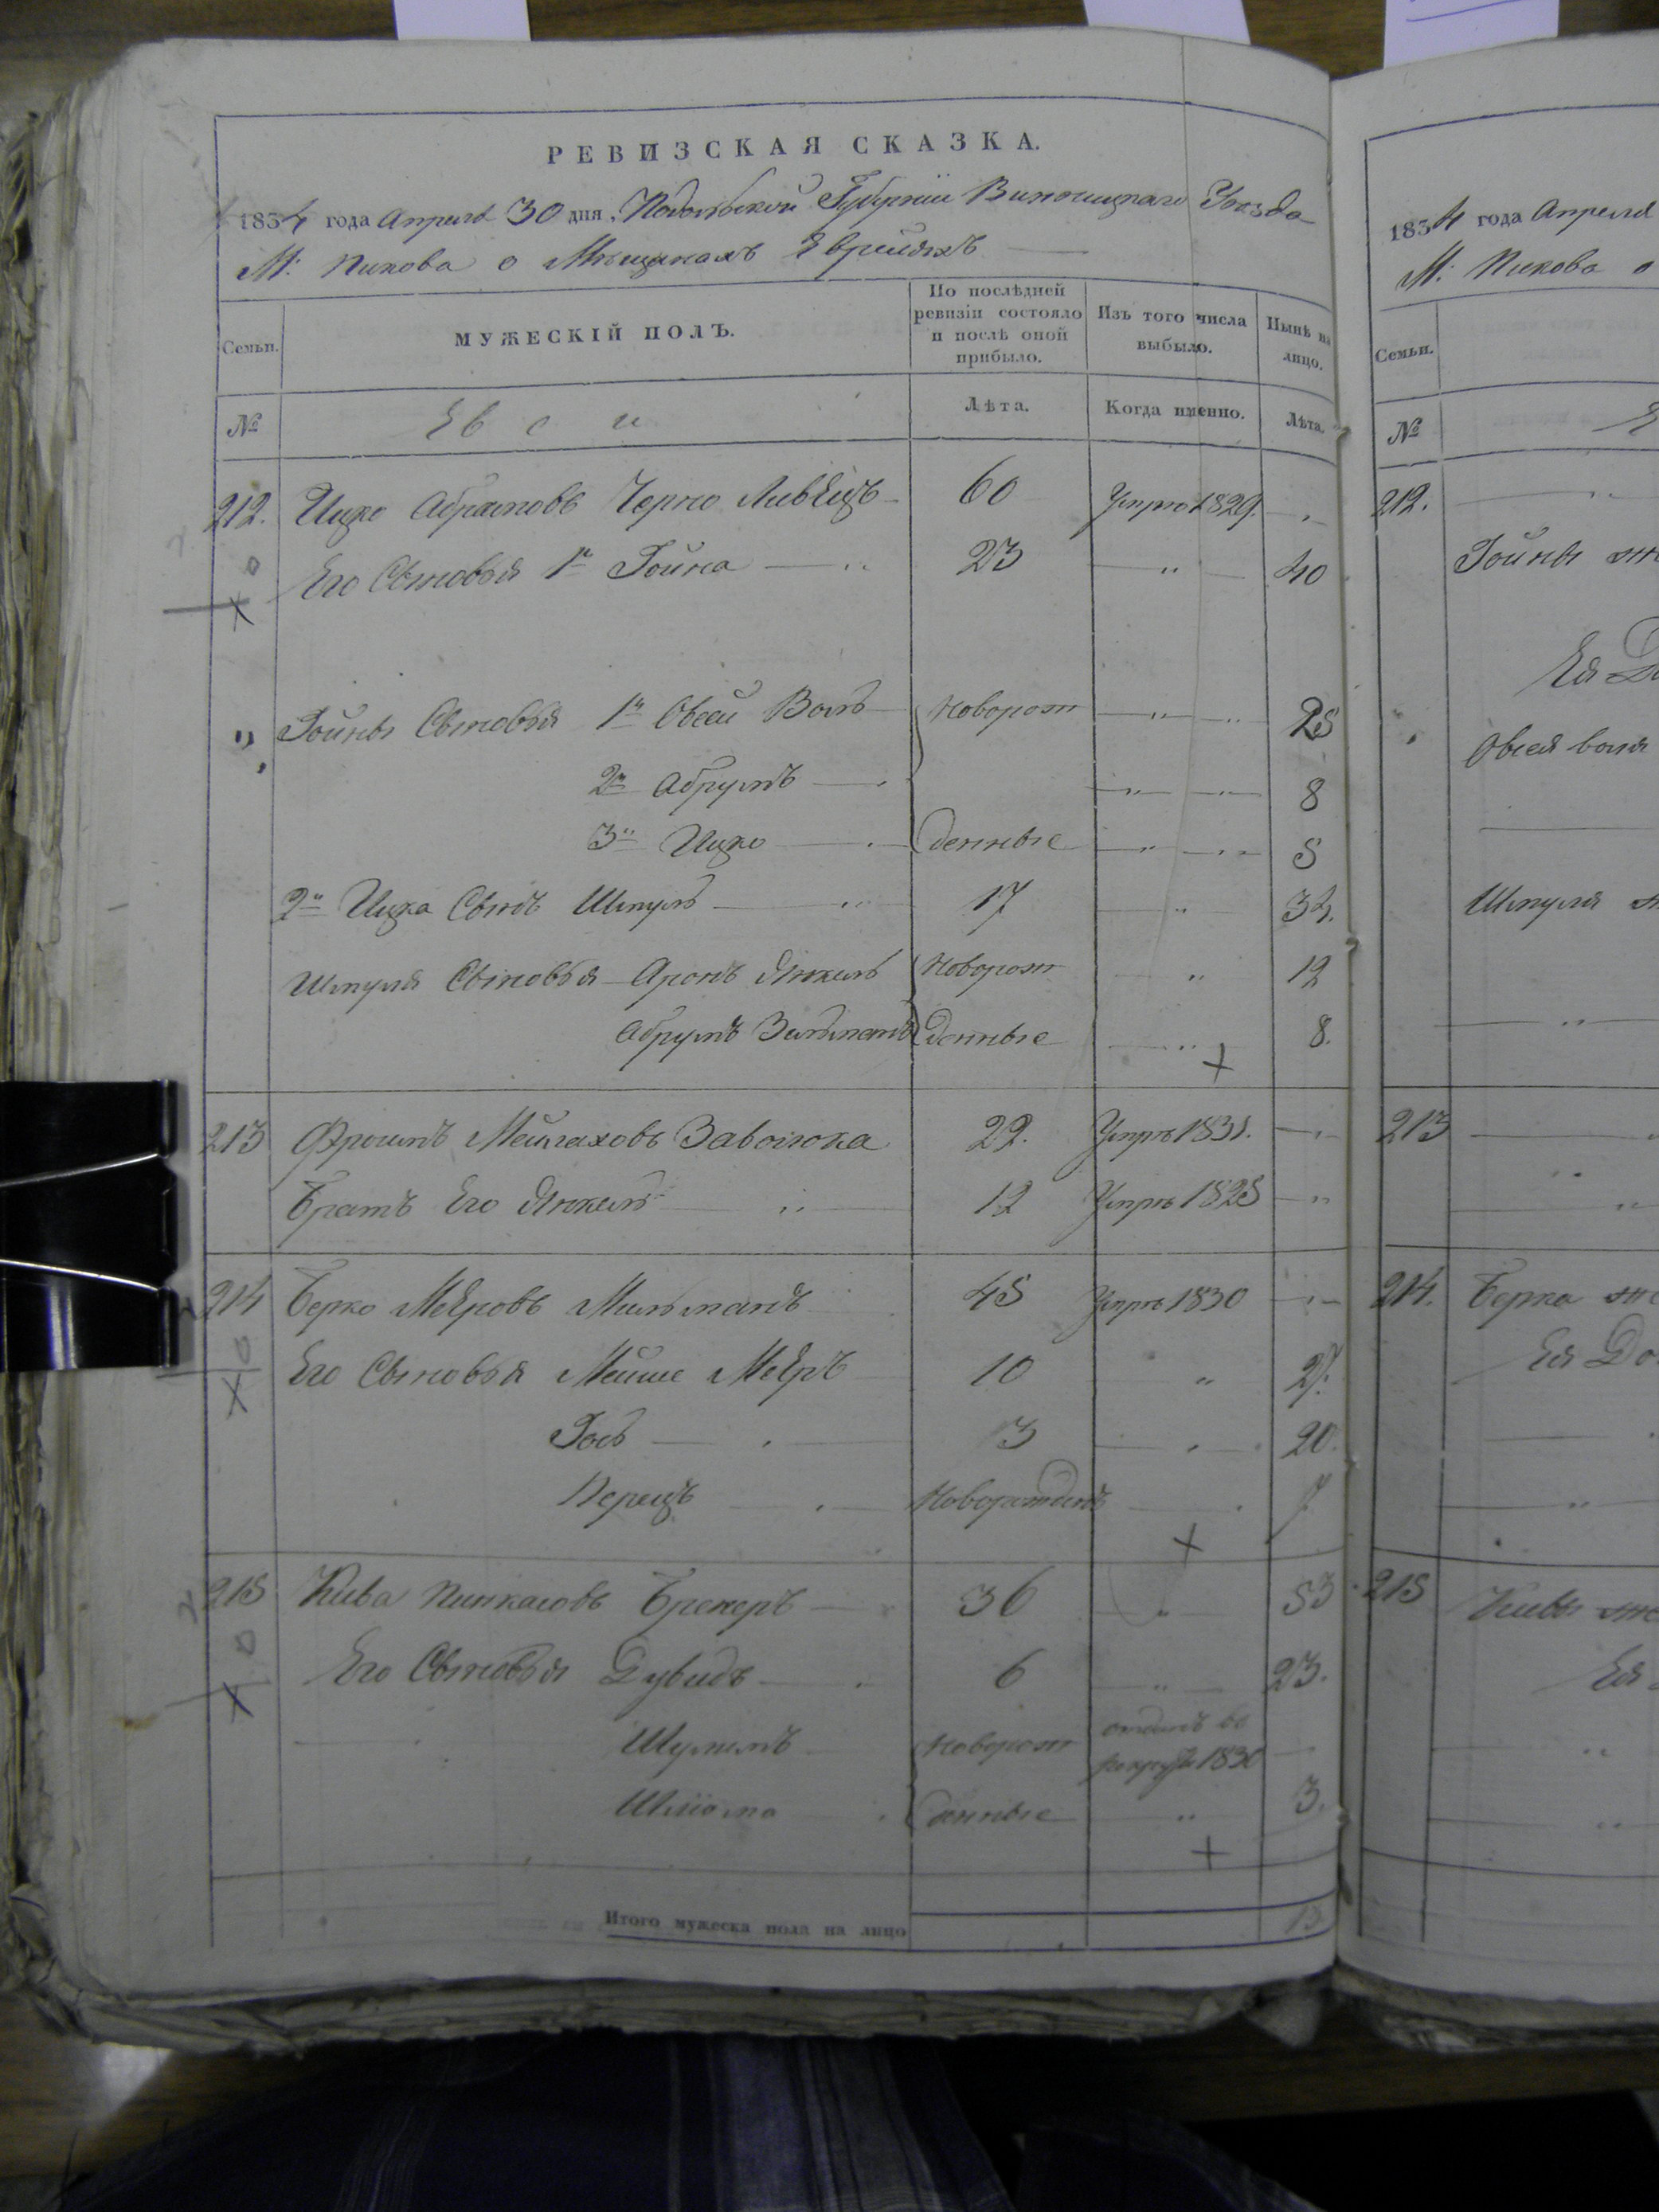 РЕВИЗСКАЯ СКАЗКА.
1834 года Апреля 30 дня, Подольской Губернии Винницкаго Уезда
М: Пикова о Мещанахъ Евреяхъ
Семьи. МУЖЕСКІЙ ПОЛЪ. По послѣдней ревизіи состояло и послѣ оной прибыло. Изъ того числа выбыло. Нынѣ на лицо.
№ Евреи Лѣта. Когда именно. Лѣта.
212. Ицко Абрамовъ Черно 60 Умре 1829.
Его Сыновья 1й Гойна 23 " 40
Гойны Сыновья 1й Овсей Волъ Новорож " 25
2й Абрумъ " 8
3й Ицко денные " 5
2й Ицка Сынъ Шмуль 17 " 34.
Шмуля Сыновья Аронъ Янкель Новорож " 12
Абрумъ денные " 8.
213 Фроимъ 22. Умре 1831.
Братъ Его Янкель 12 Умре 1825
214 Берко Меѣровъ Мильманъ 45 Умре 1830
Его Сыновья Мейше Меѣръ 10 " 27.
Гось 3 20.
Перецъ Новорожденъ 7
215 Кива Пинкасовъ Брекеръ 36 " 53
Его Сыновья Дувидъ 6 " 23.
Шулимъ Новорож отданъ въ рекруты 1830
Шліома денные " 3.
Итого мужеска пола на лицо 13
1834 года Апреля
М: Пикова о
Семьи.
№
212. "
Гойны
Ея
Овсея Воля
Шмуля
213
214. Берка
Ея До
215 Кивы
Ея